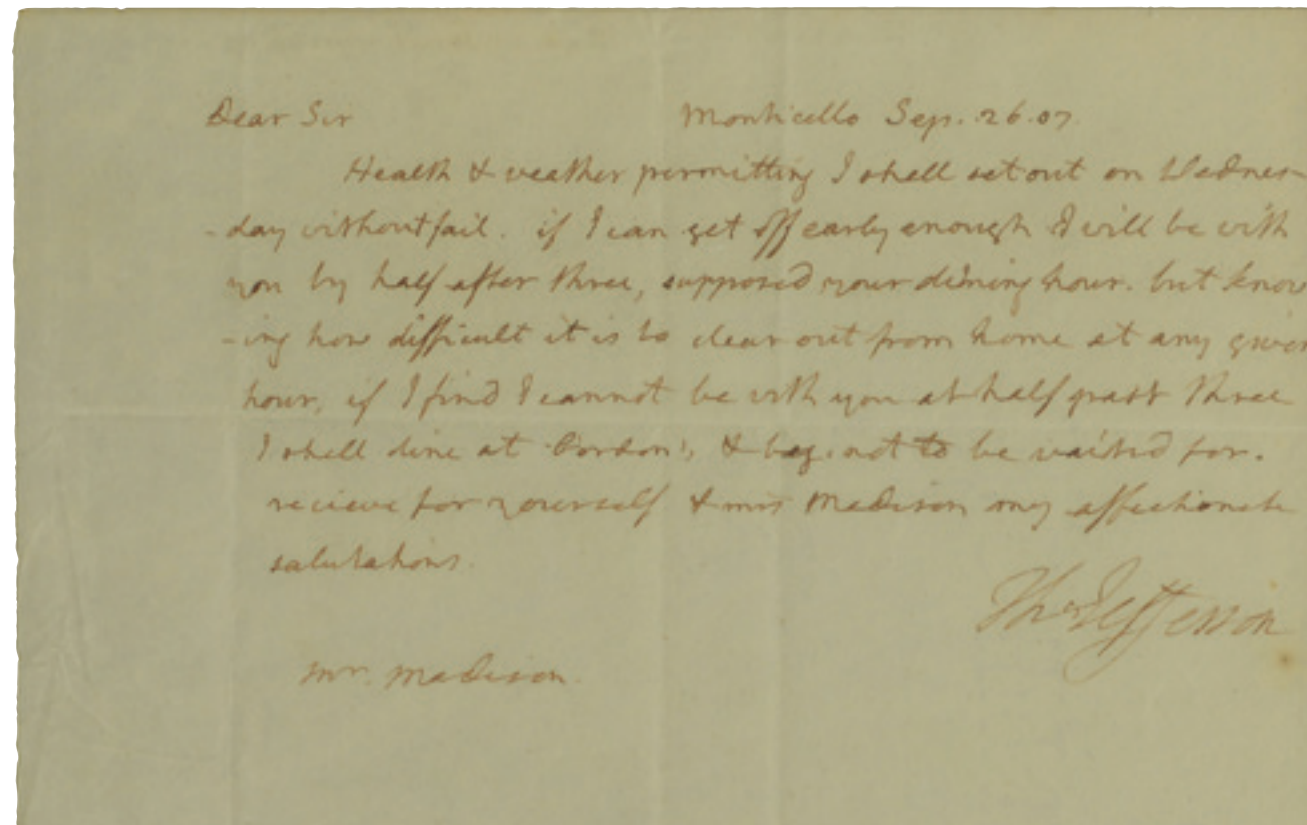 Dear Sir Monticello Sep. 26. 07.
Health & weather permitting I shall set out on Wednes-
-day without fail. if I can get off early enough I will be with
you by half after three, supposed your dining hour. but know
-ing how difficult it is to clear out from home at any given
hour, if I find I cannot be with you at half past three
I shall dine at Gordon's, & beg not to be waited for.
recieve for yourself & mrs Madison my affectionate
salutations.
Th: Jefferson
mr. Madison.